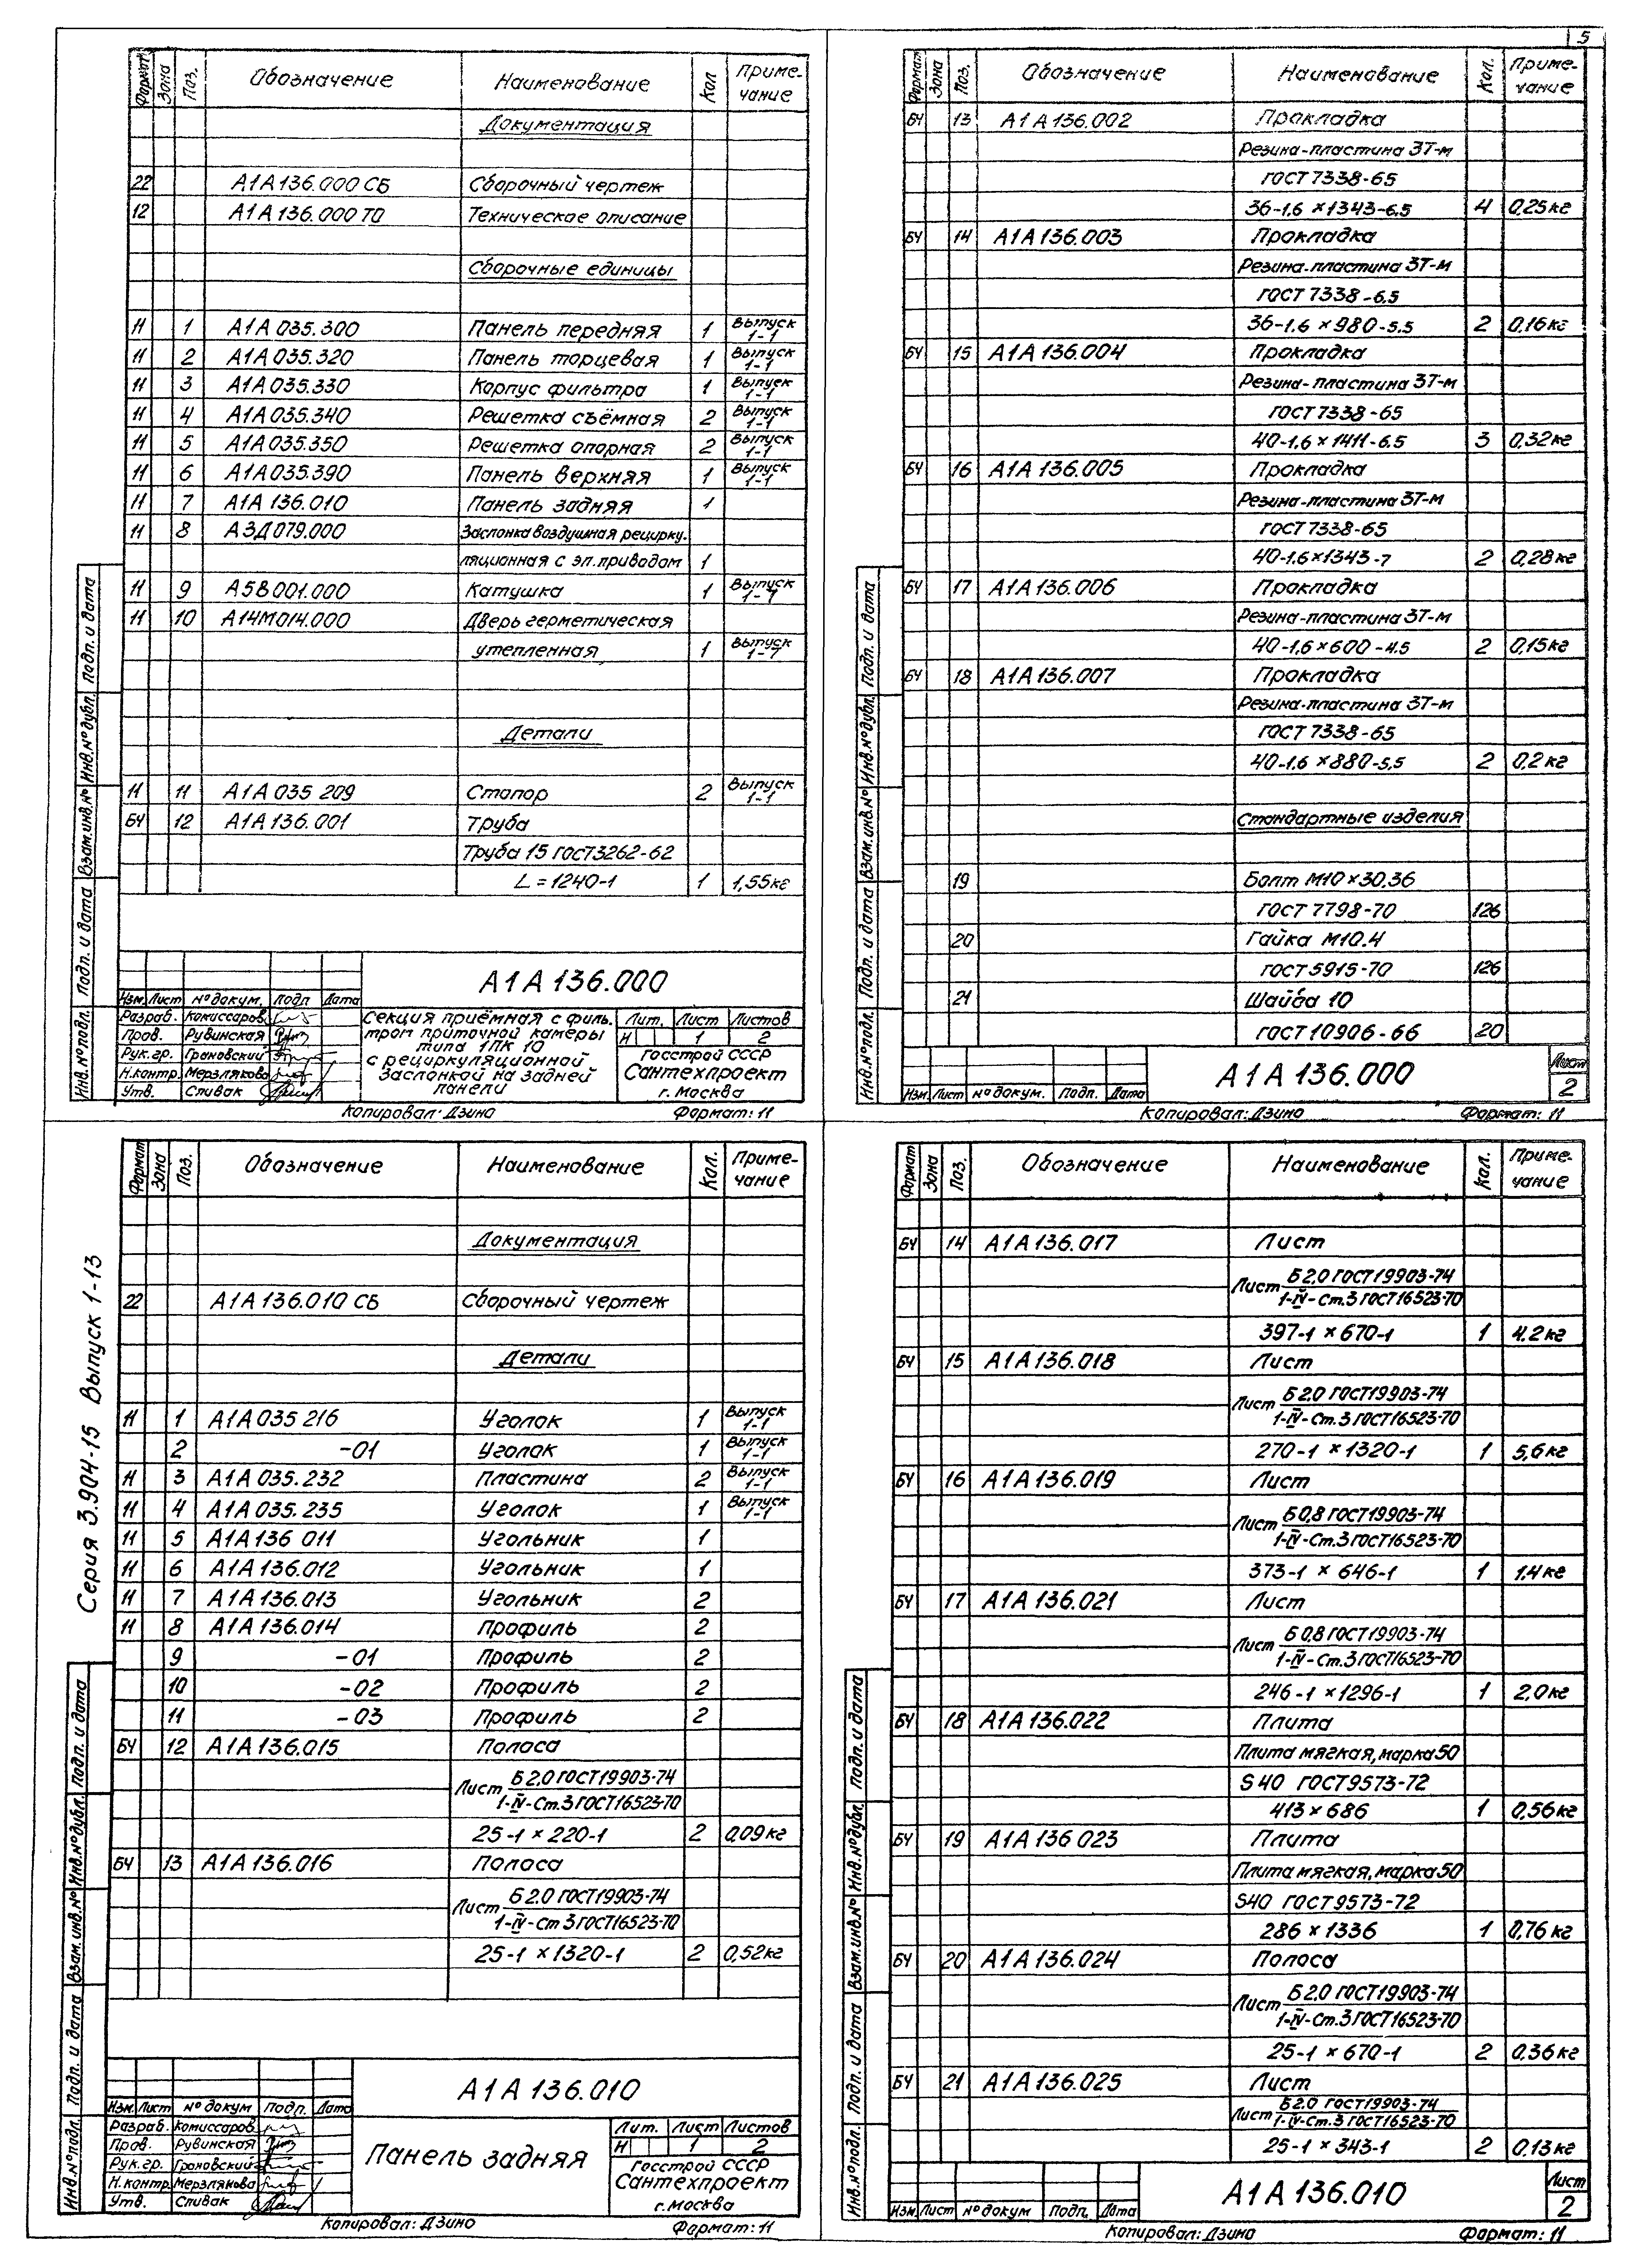 5
Формат Зона Поз. Обозначение Наименование Кол Приме-
чание
Документация
22 А1А136.000 СБ Сборочный чертеж
12 А1А136.000 ТО Техническое описание
Сборочные единицы
11 1 А1А035.300 Панель передняя 1 Выпуск 1-1
11 2 А1А035.320 Панель торцевая 1 Выпуск 1-1
11 3 А1А035.330 Корпус фильтра 1 Выпуск 1-1
11 4 А1А035.340 Решетка съёмная 2 Выпуск 1-1
11 5 А1А035.350 Решетка опорная 2 Выпуск 1-1
11 6 А1А035.390 Панель верхняя 1 Выпуск 1-1
11 7 А1А136.010 Панель задняя 1
11 8 А3Д079.000 Заслонка воздушная рецирку-
ляционная с эл.приводом 1
11 9 А5В001.000 Катушка 1 Выпуск 1-7
11 10 А14М014.000 Дверь герметическая
утепленная 1 Выпуск 1-7
Детали
11 11 А1А035 209 Стопор 2 Выпуск 1-1
БЧ 12 А1А136.001 Труба
Труба 15 ГОСТ3262-62
L=1240-1 1 1,55кг
А1А136.000
Изм. Лист № докум. Подп Дата
Разраб. Комиссаров
Пров. Рувинская
Рук.гр. Грановский
Н.контр. Мерзлякова
Утв. Спивак
Секция приёмная с филь-
тром приточной камеры
типа 1ПК 10
с рециркуляционной
заслонкой на задней
панели
Лит. Лист Листов
И 1 2
Госстрой СССР
Сантехпроект
г. Москва
Инв.№подл. Подп. и дата Взам.инв.№ Инв.№дубл. Подп. и дата
Копировал: Дзино Формат: 11
Формат Зона Поз. Обозначение Наименование Кол. Приме-
чание
БЧ 13 А1А136.002 Прокладка
Резина-пластина 3Т-м
ГОСТ 7338-65
36-1,6 × 1343-6.5 4 0,25кг
БЧ 14 А1А136.003 Прокладка
Резина-пластина 3Т-м
ГОСТ 7338-6.5
36-1.6 × 980-5.5 2 0,16кг
БЧ 15 А1А136.004 Прокладка
Резина-пластина 3Т-м
ГОСТ 7338-65
40-1,6 × 1411-6.5 3 0,32кг
БЧ 16 А1А136.005 Прокладка
Резина-пластина 3Т-м
ГОСТ 7338-65
40-1.6×1343-7 2 0,28кг
БЧ 17 А1А136.006 Прокладка
Резина-пластина 3Т-м
40-1,6×600-4.5 2 0,15кг
БЧ 18 А1А136.007 Прокладка
Резина-пластина 3Т-м
ГОСТ 7338-65
40-1.6 ×880-5,5 2 0,2кг
Стандартные изделия
19 Болт М10×30.36
ГОСТ 7798-70 126
20 Гайка М10.4
ГОСТ 5915-70 126
21 Шайба 10
ГОСТ 10906-66 20
Изм. Лист № докум. Подп. Дата
А1А136.000
Лист
2
Инв.№подл. Подп. и дата Взам.инв.№ Инв.№дубл. Подп. и дата
Копировал: Дзино Формат: 11
Серия 3.904-15 Выпуск 1-13
Формат Зона Поз. Обозначение Наименование Кол. Приме-
чание
Документация
22 А1А136.010 СБ Сборочный чертеж
Детали
11 1 А1А035 216 Уголок 1 Выпуск 1-1
2 -01 Уголок 1 Выпуск 1-1
11 3 А1А035.232 Пластина 2 Выпуск 1-1
11 4 А1А035.235 Уголок 1 Выпуск 1-1
11 5 А1А136 011 Угольник 1
11 6 А1А136.012 Угольник 1
11 7 А1А136.013 Угольник 2
11 8 А1А136.014 Профиль 2
9 -01 Профиль 2
10 -02 Профиль 2
11 -03 Профиль 2
БЧ 12 А1А136.015 Полоса
Лист Б2.0 ГОСТ19903-74
1-IV-Ст.3 ГОСТ16523-70
25-1 × 220-1 2 0,09кг
БЧ 13 А1А136.016 Полоса
Лист Б2.0 ГОСТ19903-74
1-IV-Ст 3 ГОСТ16523-70
25-1 × 1320-1 2 0,52кг
А1А136.010
Изм. Лист № докум Подп. Дата
Разраб. Комиссаров
Пров. Рувинская
Рук.гр. Грановский
Н.контр. Мерзлякова
Утв. Спивак
Панель задняя
Лит. Лист Листов
И 1 2
Госстрой СССР
Сантехпроект
г.Москва
Инв.№подл. Подп. и дата Взам.инв.№ Инв.№дубл. Подп. и дата
Копировал: Дзино Формат: 11
Формат Зона Поз. Обозначение Наименование Кол. Приме-
чание
БЧ 14 А1А136.017 Лист
Лист Б2.0 ГОСТ19903-74
1-IV-Ст.3 ГОСТ16523-70
397-1 × 670-1 1 4.2кг
БЧ 15 А1А136.018 Лист
Лист Б2.0 ГОСТ19903-74
1-IV-Ст.3 ГОСТ16523-70
270-1 × 1320-1 1 5,6кг
БЧ 16 А1А136.019 Лист
Лист Б0,8 ГОСТ19903-74
1-IV-Ст.3 ГОСТ16523-70
373-1 × 646-1 1 1.4кг
БЧ 17 А1А136.021 Лист
Лист Б0,8 ГОСТ19903-74
1-IV-Ст.3 ГОСТ16523-70
246-1 × 1296-1 1 2,0кг
БЧ 18 А1А136.022 Плита
Плита мягкая, марка 50
S40 ГОСТ9573-72
413 × 686 1 0,56кг
БЧ 19 А1А136 023 Плита
Плита мягкая, марка 50
S40 ГОСТ9573-72
286 × 1336 1 0,76кг
БЧ 20 А1А136.024 Полоса
Лист Б2.0 ГОСТ19903-74
1-IV-Ст.3 ГОСТ16523-70
25-1 × 670-1 2 0.36кг
БЧ 21 А1А136.025 Лист
Лист Б2.0 ГОСТ19903-74
1-IV-Ст-3 ГОСТ16523-70
25-1 × 343-1 2 0.13кг
Изм. Лист № докум Подп. Дата
А1А136.010
Лист
2
Инв.№подл. Подп. и дата Взам.инв.№ Инв.№дубл. Подп. и дата
Копировал: Дзино Формат: 11